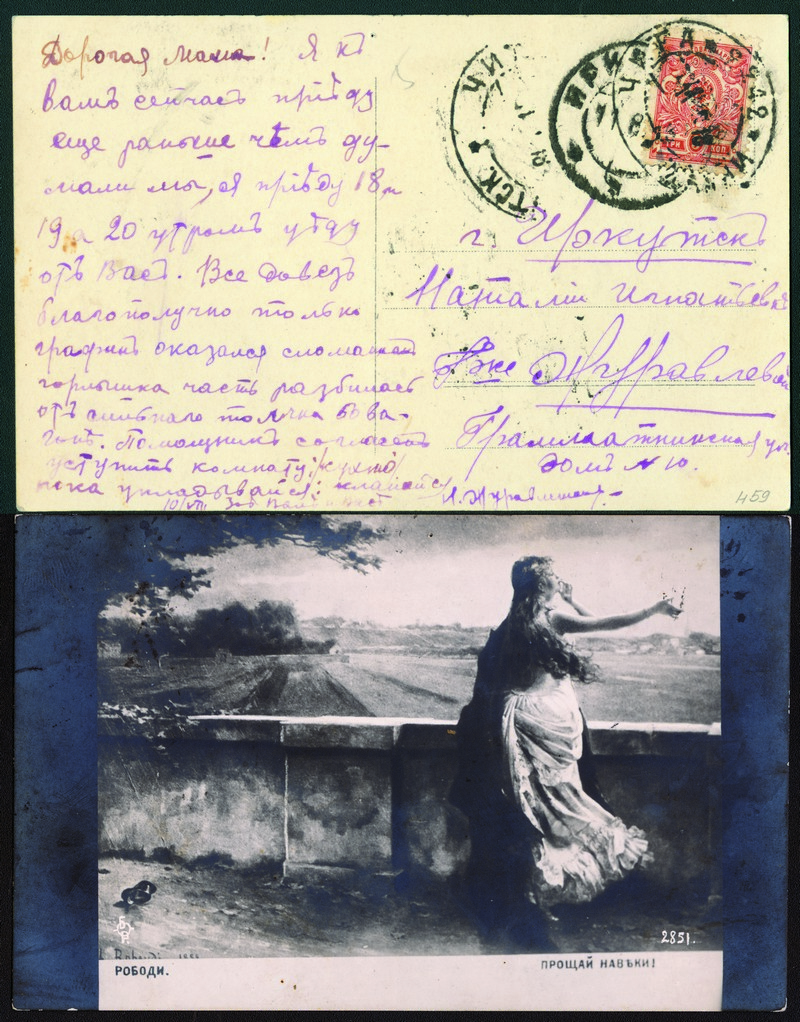 Дорогая мама! Я къ
вамъ сейчасъ прiѣду
еще раньше чѣмъ ду-
мали мы, я прiѣду 18 и
19 а 20 утромъ уѣду
отъ Васъ. Все довезъ
благополучно только
графинъ оказался сломанъ
горлышка часть разбилась
отъ сильнаго толчка въ ва-
гонѣ. Помощникъ согласенъ
уступить комнату
пока укладывайся:
10/VIII
г. Иркутскъ
Наталiи Игнатьевнѣ
Г-же Журавлевой
Грамматинская ул.
домъ № 10.
459
ТРИ КОП
2851.
РОБОДИ.
ПРОЩАЙ НАВѢКИ!